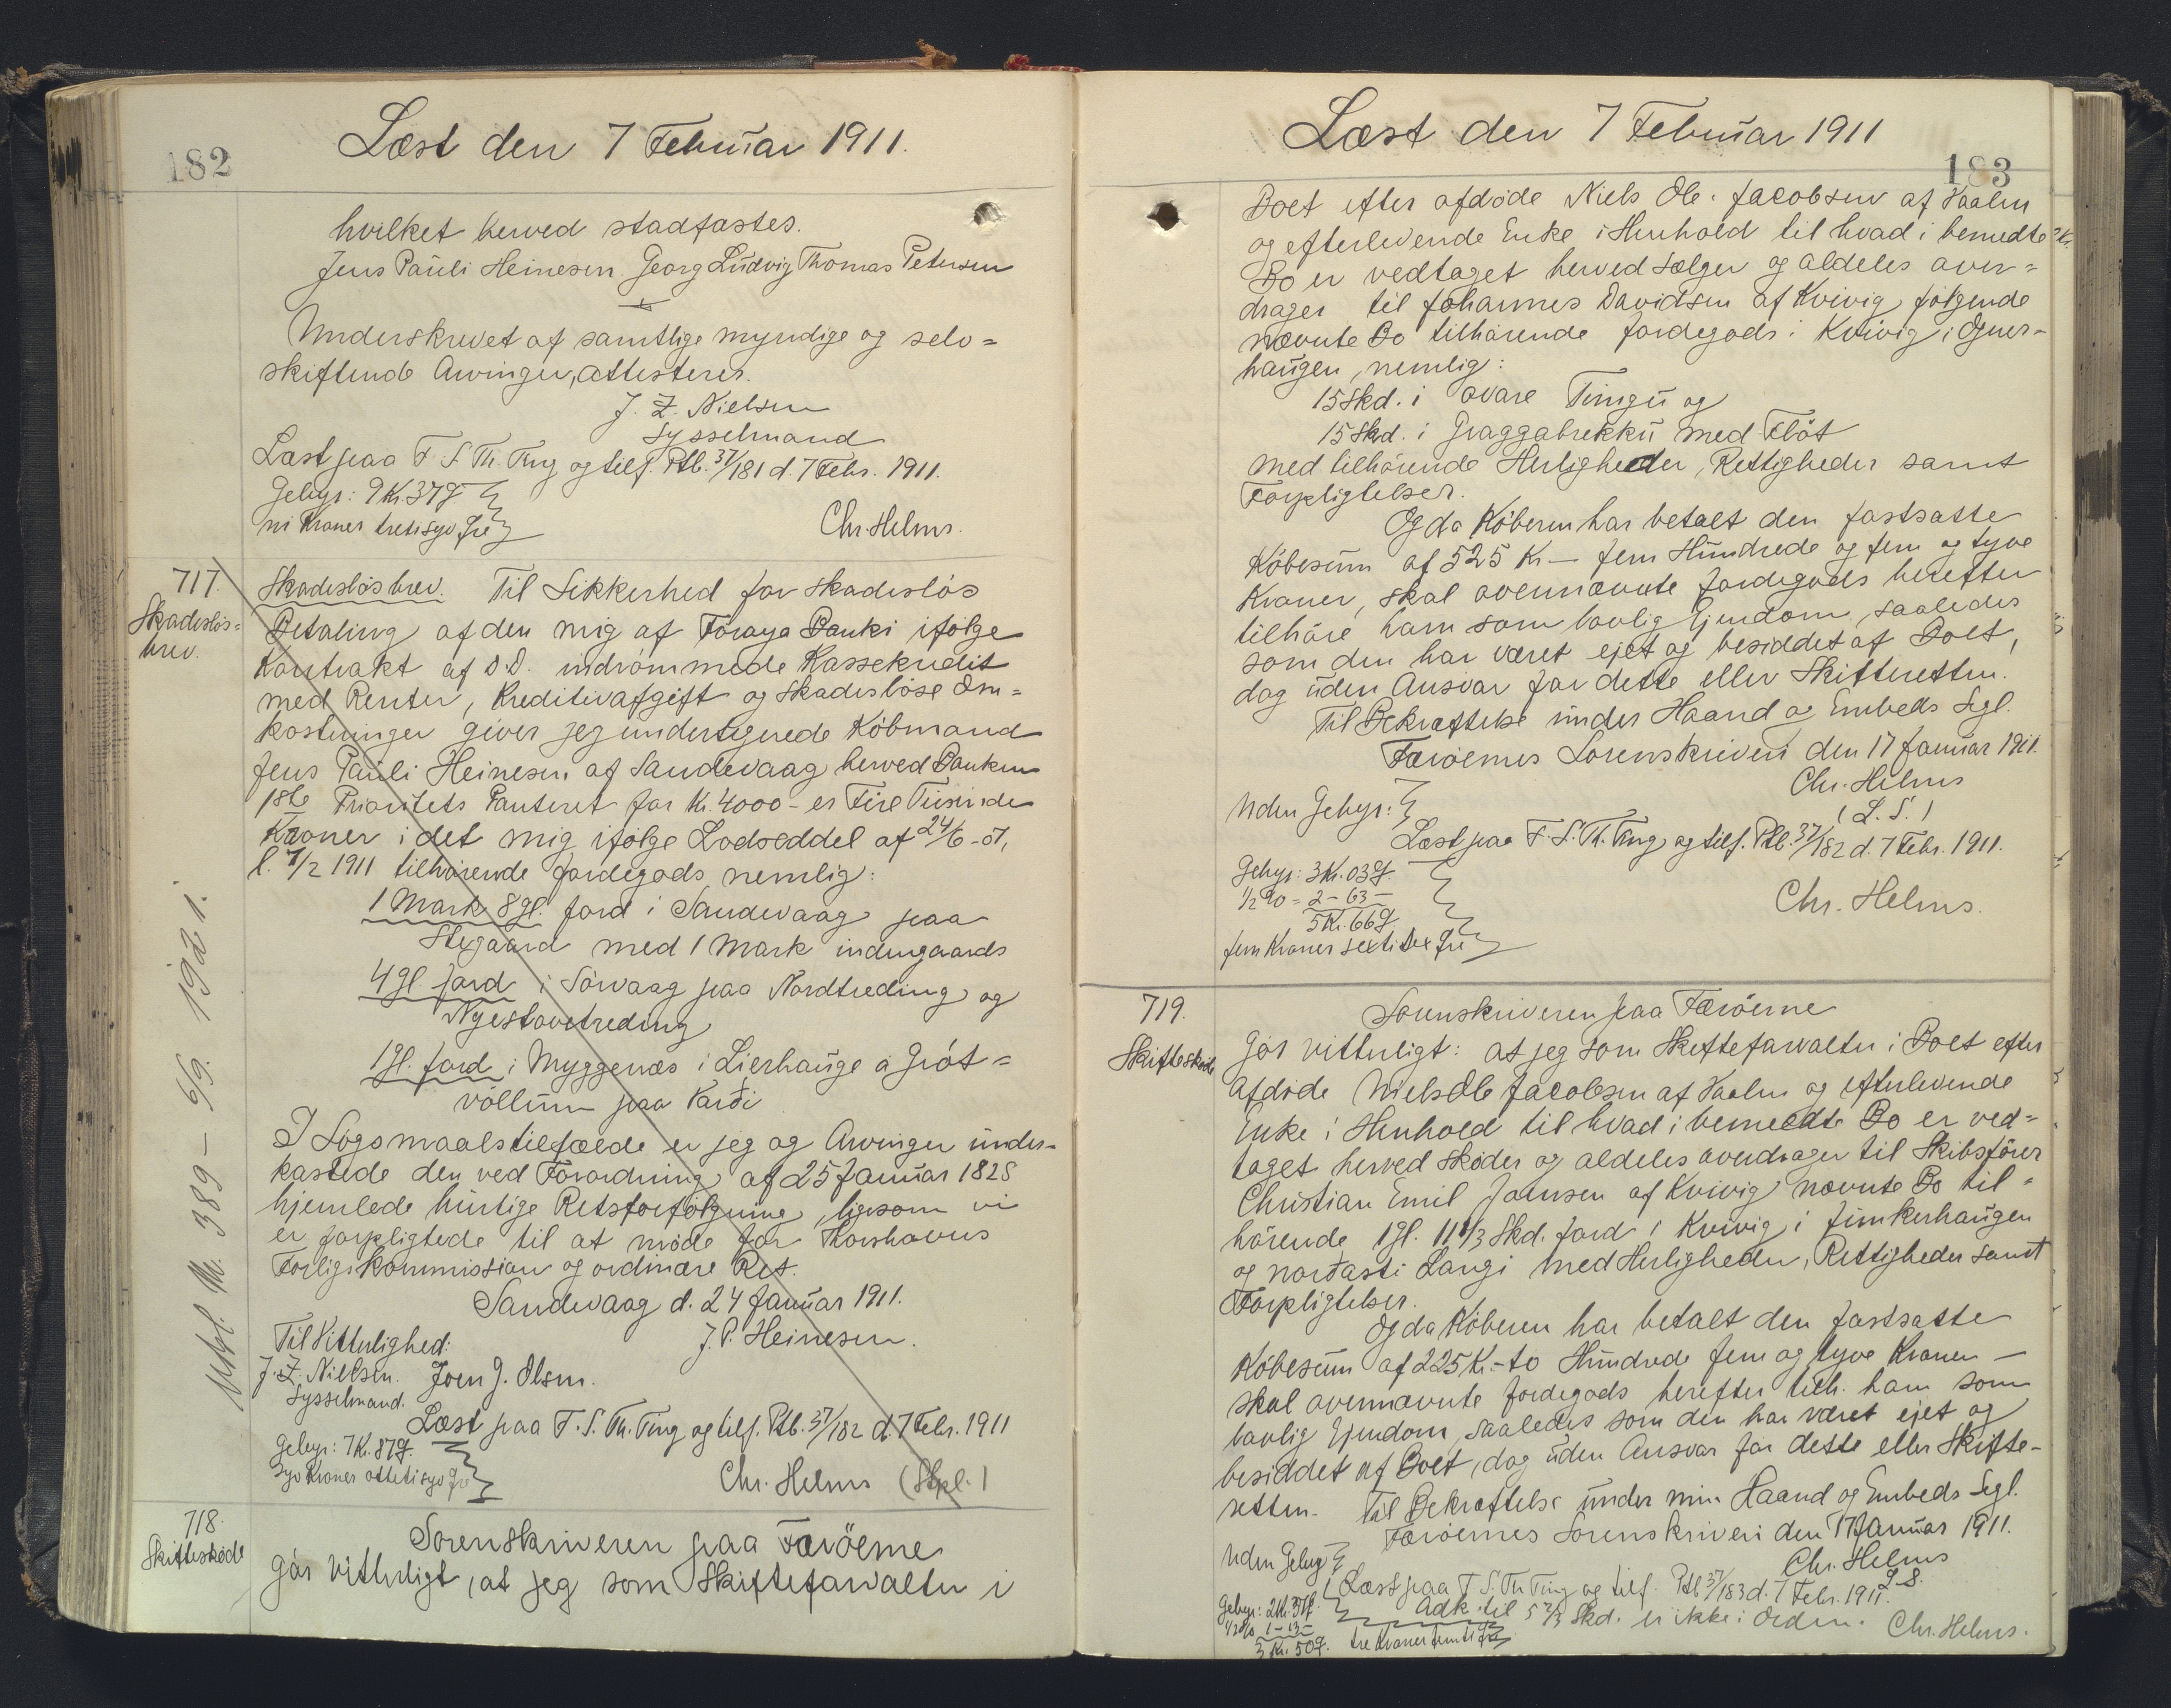 182
Læst den 7 Februar 1911.
hvilket herved stadfæstes.
Jens Pauli Heinesen. Georg Ludvig Thomas Petersen
Underskrevet af samtlige myndige og selv=
skiftende Arvinger, attesterer.
J. Z. Nielsen
Sysselmand
Læst paa F. S. Th. Ting og tilf. Ptb. 37/181 d. 7 Febr. 1911.
Gebyr: 9 Kr. 37 Ø
ni Kroner tretisyv Øre
Chr. Helms.
717.
Skadesløs=
brev.
Skadesløsbrev. Til Sikkerhed for skadesløs
Betaling af den mig af Føroya Banki ifølge
Kontrakt af D.D. indrømmede Kassekredit
med Renter, Kreditivafgift og skadesløse Om=
kostninger giver jeg undertegnede Købmand
Jens Pauli Heinesen af Sandevaag herved Banken
1ste Prioritets Panteret for Kr. 4000 – er Fire Tusinde
Kroner i det mig ifølge Lodseddel af 24/6 - 01,
l. 7/2 1911 tilhørende Jordegods nemlig:
1 Mark 8 gl. Jord i Sandevaag paa
Stegaard med 1 Mark indengaards
4 gl. Jord i Sørvaag paa Nordtreding og
Nyestovetreding
1 gl. Jord i Myggenæs i Lierhauge a Grót=
völlum paa Karði
I Søgsmaalstilfælde er jeg og Arvinger under-
kastede den ved Forordning af 25 Januar 1828
hjemlede hurtige Retsforfølgning, ligesom vi
er forpligtede til at møde for Thorshavns
Forligskommission og ordinære Ret.
Sandevaag d. 24 Januar 1911.
J. P. Heinesen.
Til Vitterlighed:
J. Z. Nielsen. Joen J. Olsen.
Sysselmand.
Læst paa F. S. Th. Ting og tilf. Ptb. 37/182 d. 7 Febr. 1911
Gebyr: 7 Kr. 87 Ø.
Syv Kroner ottetisyv Øre
Chr. Helms (Stpl.)
Udsl. M. 389 – 6/9. 1921.
718.
Skifteskøde
Sorenskriveren paa Færöerne
Gør vitterligt, at jeg som Skifteforvalter i
183
Læst den 7 Februar 1911
Boet efter afdøde Niels Ole Jacobsen af Kaalen
og efterlevende Enke i Henhold til hvad i bemeldte
Bo er vedtaget herved sælger og aldeles over=
drager til Johannes Davidsen af Kvivig følgende
nævnte Bo tilhørende Jordegods i Kvivig i Ogner-
haugen, nemlig:
15 Skd. i ovare Tungu og
15 Skd. i Graggabrekku med Fløt
med tilhørende Herligheder, Rettigheder samt
Forpligtelser.
Og da Køberen har betalt den fastsatte
Købesum af 525 Kr – fem Hundrede og fem og tyve
Kroner, skal ovennævnte Jordegods herefter
tilhøre ham som lovlig Ejendom, saaledes
som den har været ejet og besiddet af Boet,
dog uden Ansvar for dette eller Skifteretten.
Til Bekræftelse under Haand og Embeds Segl.
Færöernes Sorenskriveri den 17 Januar 1911.
Chr. Helms
(L. S.)
Uden Gebyr:
Læst paa F. S. Th. Ting og tilf. Ptb. 37/182 d. 7 Febr. 1911.
Gebyr: 3 Kr. 03 Ø.
1/2 % = 2 – 63 –
5 Kr. 66 Ø
fem Kroner sextisex Øre
Chr. Helms.
719.
Skifteskøde
Sorenskriveren paa Færöerne
Gør vitterligt: at jeg som Skifteforvalter i Boet efter
afdøde Niels Ole Jacobsen af Kaalen og efterlevende
Enke i Henhold til hvad i bemeldte Bo er ved=
taget herved skøder og aldeles overdrager til Skibsfører
Christian Emil Joensen af Kvivig nævnte Bo til=
hørende 1 gl. 11 1/3 Skd. Jord i Kvivig i Junkerhaugen
og norðasti Langi med Herligheder, Rettigheder samt
Forpligtelser.
Og da Køberen har betalt den fastsatte
Købesum af 225 Kr. – to Hundrede fem og tyve Kroner –
skal ovennævnte Jordegods herefter tilh. ham som
lovlig Ejendom, saaledes som den har været ejet og
besiddet af Boet, dog uden Ansvar for dette eller Skifte-
retten. Til Bekræftelse under min Haand og Embeds Segl.
Færöernes Sorenskriveri den 17 Januar 1911.
Chr. Helms
L. S.
Uden Gebyr
Læst paa F. S. Th. Ting og tilf. Ptb 37/183 d. 7 Febr. 1911.
Adk. til 5 2/3 Skd. er ikke i Orden.
Gebyr: 2 Kr. 37 Ø.
1/2 % 1 – 13 –
3 Kr. 50 Ø. tre Kroner femti Øre
Chr. Helms.